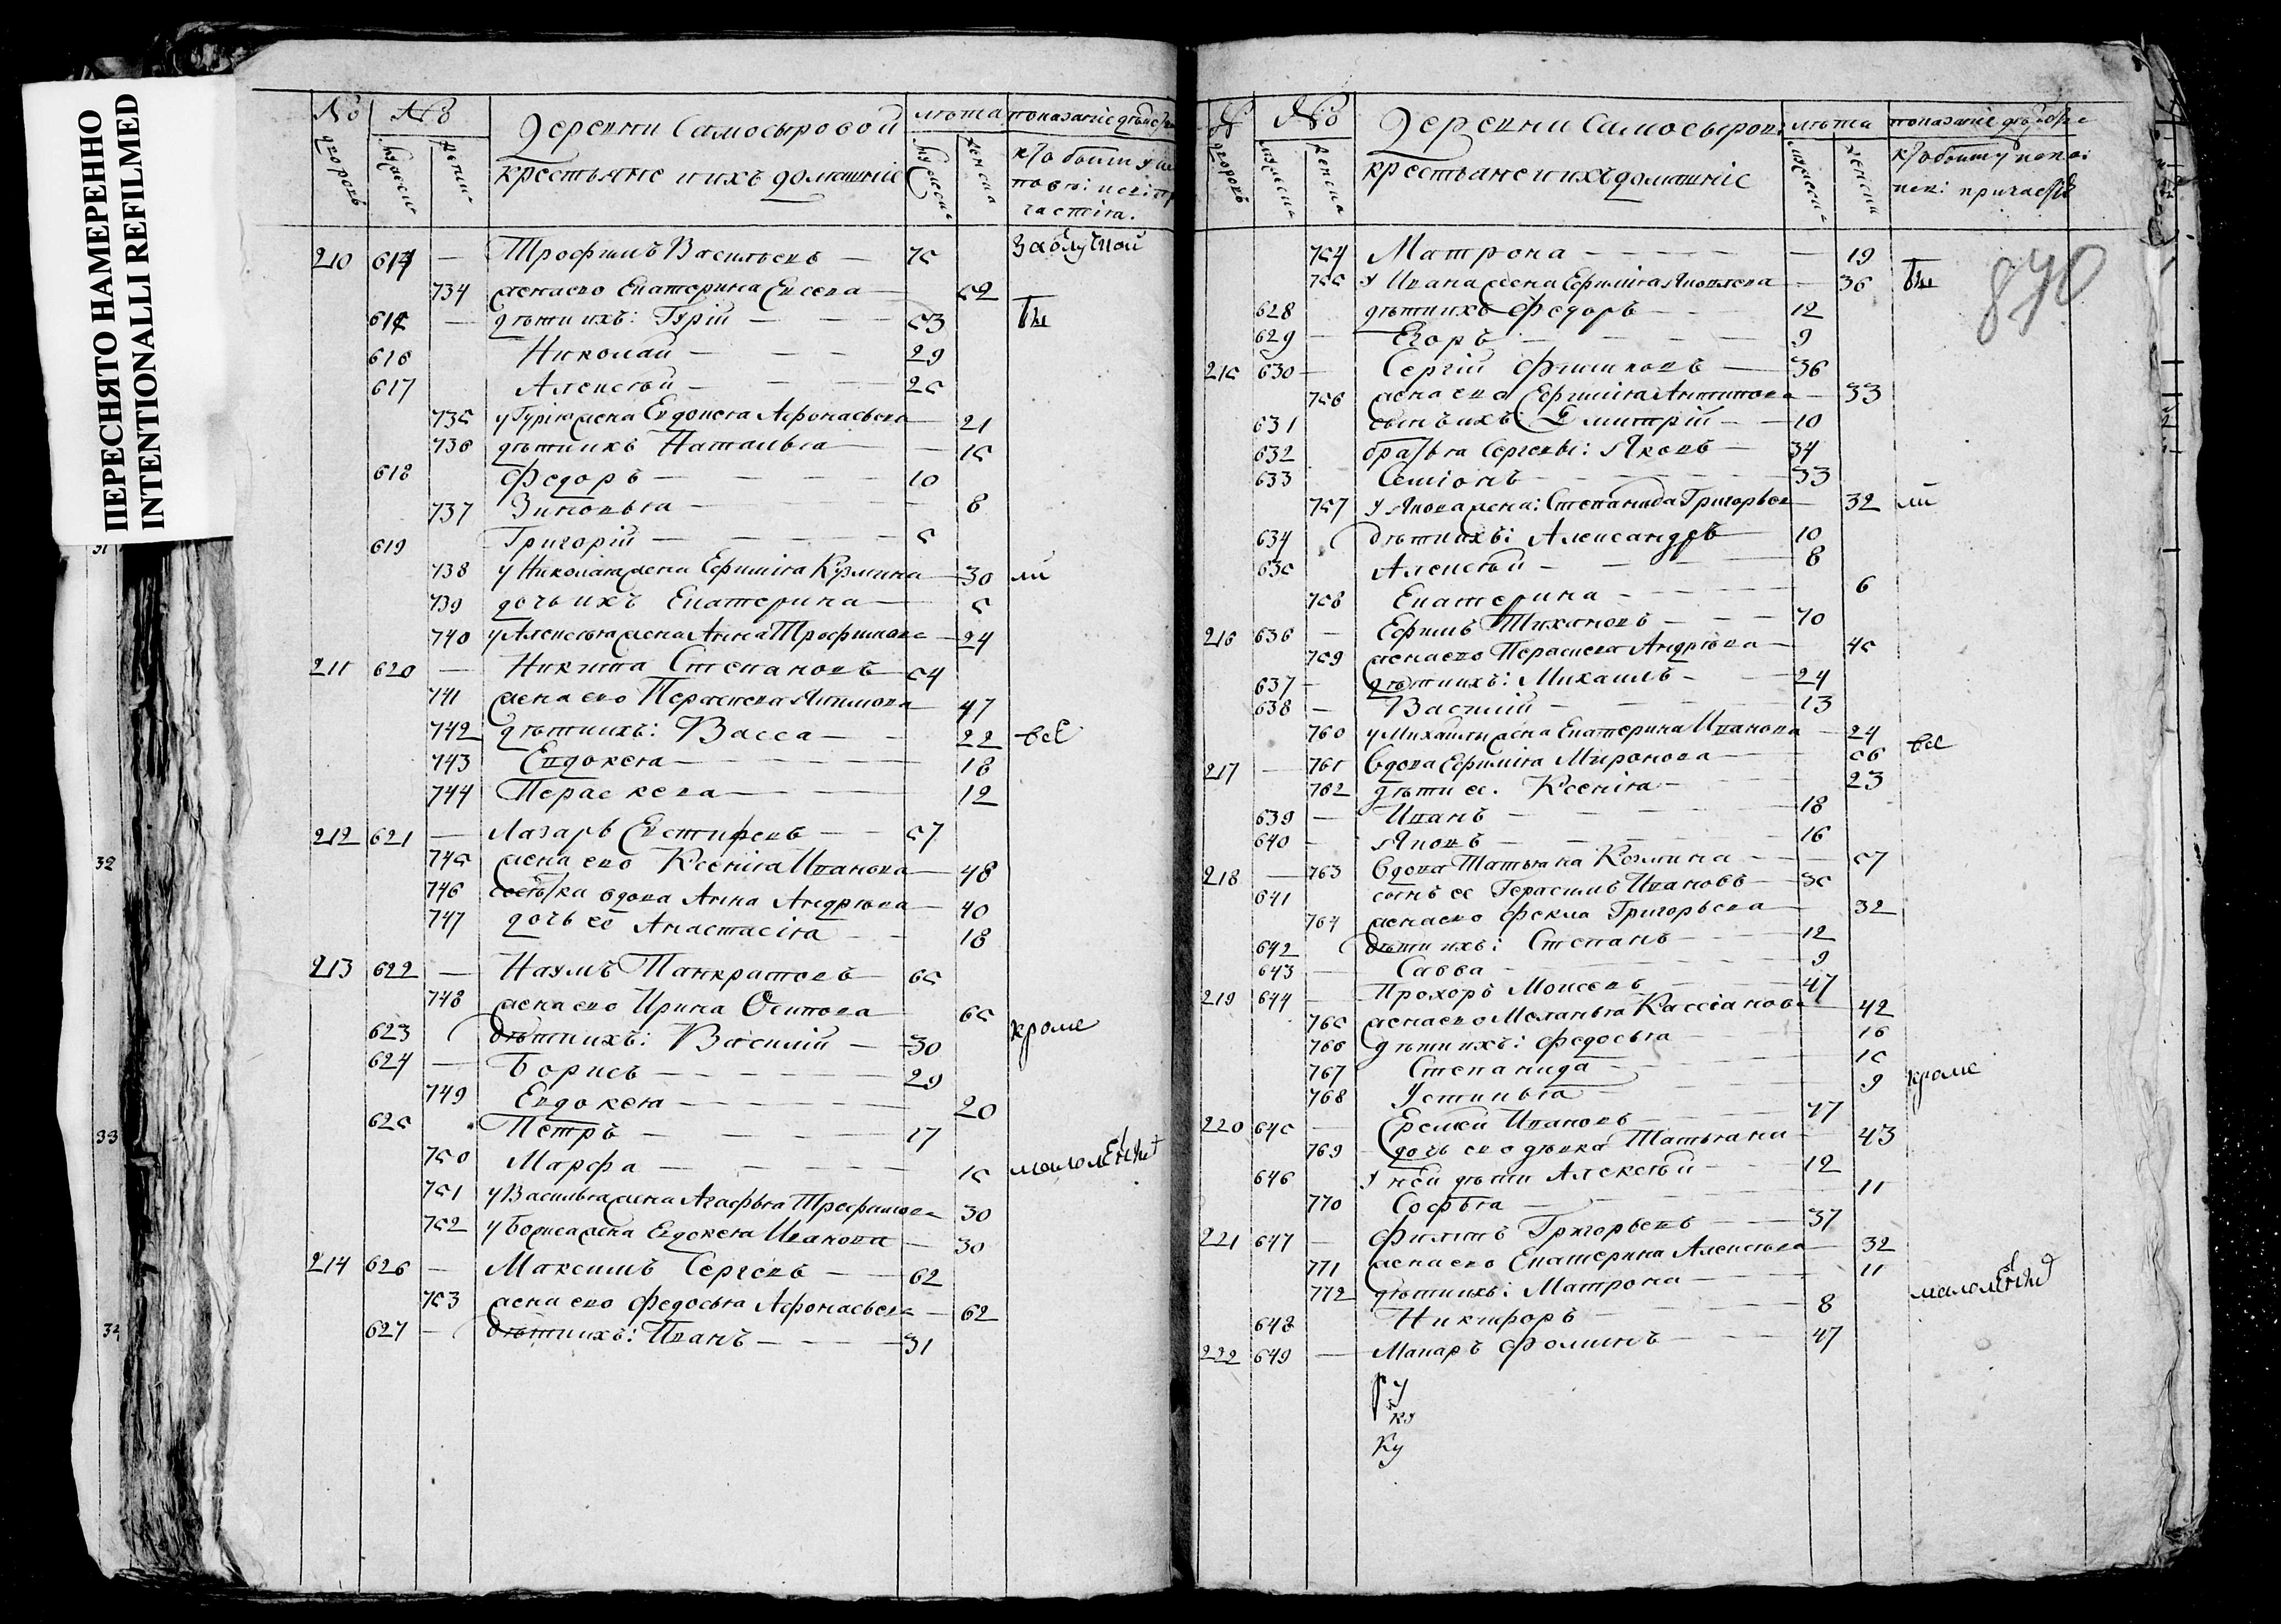 ПЕРЕСНЯТО НАМЕРЕННО
INTENTIONALLI REFILMED
31
32
33
34
№ дворовъ № мужеска женска Деревни Самосыровой крестьяне и ихъ домашніе лѣта мужеска женска показаніе дѣйств
кто былъ у испов: и св: причастія.
210 614 — Трофимъ Васильевъ — 75
734 жена ево Екатерина Евсеева — 52
615 — дѣти ихъ: Гурій — 53
616 Николай — 29
617 Алексѣй — 25
735 у Гурія жена Евдокея Афонасьева — 21
736 дѣти ихъ Наталья — 15
618 Федоръ — 10
737 Зиновья — 8
619 Григорій — 5
738 у Николая жена Ефимія Кузмина — 30 ли
739 дочь ихъ Екатерина — 5
740 у Алексѣя жена Анна Трофимова — 24
211 620 — Никита Степановъ — 54
741 жена ево Параскева Якимова — 47
742 дѣти ихъ: Васса — 22 все
743 Евдокея — 18
744 Параскева — 12
212 621 — Лазарь Евстифеевъ — 57
745 жена ево Ксенія Иванова — 48
746 вдова Анна Андрѣева — 40
747 дочь её Анастасія — 18
213 622 — Наумъ Панкратовъ — 65
748 жена ево Ирина Осипова — 65
623 дѣти ихъ: Василий — 30 кроме
624 — Борисъ — 29
749 Евдокея — 20
625 Петръ — 17
750 Марфа — 15
751 у Василья жена Агафья Трофимова 30
752 у Бориса жена Евдокея Иванова — 30
214 626 — Максимъ Сергеевъ — 62
753 жена ево Федосья Афонасьева — 62
627 — дѣти ихъ: Иванъ — 31
№ дворовъ № мужеска женска Деревни Самосыровой крестьяне и ихъ домашніе лѣта мужеска женска показаніе дѣйств
кто былъ у испов: и св: причастія
840
754 Матрона — 19
755 У Ивана жена Ефимія Яковлева — 36 бы
628 дѣти ихъ Федоръ — 12
629 — Егоръ — 9
215 630 — Сергій Филиповъ — 36
756 жена ево Ефимія Антипова — 33
631 сынъ ихъ Димитрій — 10
632 братья Сергеевы: Яковъ — 34
633 Семіонъ — 33
757 у Якова жена: Степанида Григорьев 32 ли
634 дѣти ихъ: Александръ 10
635 Алексѣй — 8
758 Екатерина — 6
216 636 — Ефимъ Тихановъ — 70
759 жена ево Параскева Андрѣева — 45
637 — дѣти ихъ: Михаилъ — 24
638 — Василий — 13
760 у Михайли жена Екатерина Иванова — 24 все
217 — 761 вдова Ефимія Миронова — 56
762 дѣти ее. Ксенія — 23
639 — Иванъ — 18
640 — Яковъ — 16
218 — 763 вдова Татьяна Козмина — 57
641 сынъ ее Герасимъ Ивановъ — 35
764 жена ево Фекла Григорьева — 32
642 дѣти ихъ: Степанъ — 12
643 — Савва — 9
219 644 — Прохоръ Моисеевъ — 47
765 жена ево Меланья Кассіанова 42
766 дѣти ихъ: Федосья — 16
767 Степанида — 15
768 Устинья — 9 кроме
220 645 — Еремей Ивановъ — 77
769 дочь ево дѣвка Татьяна — 43
646 У ней дѣти Алексѣй — 12
770 Софья — 11
221 647 — Филипъ Григорьевъ — 37
771 жена ево Екатерина Алексѣева — 32
772 дѣти ихъ: Матрона — 11
648 Никифоръ — 8
222 649 — Макаръ Фоминъ — 47
ку